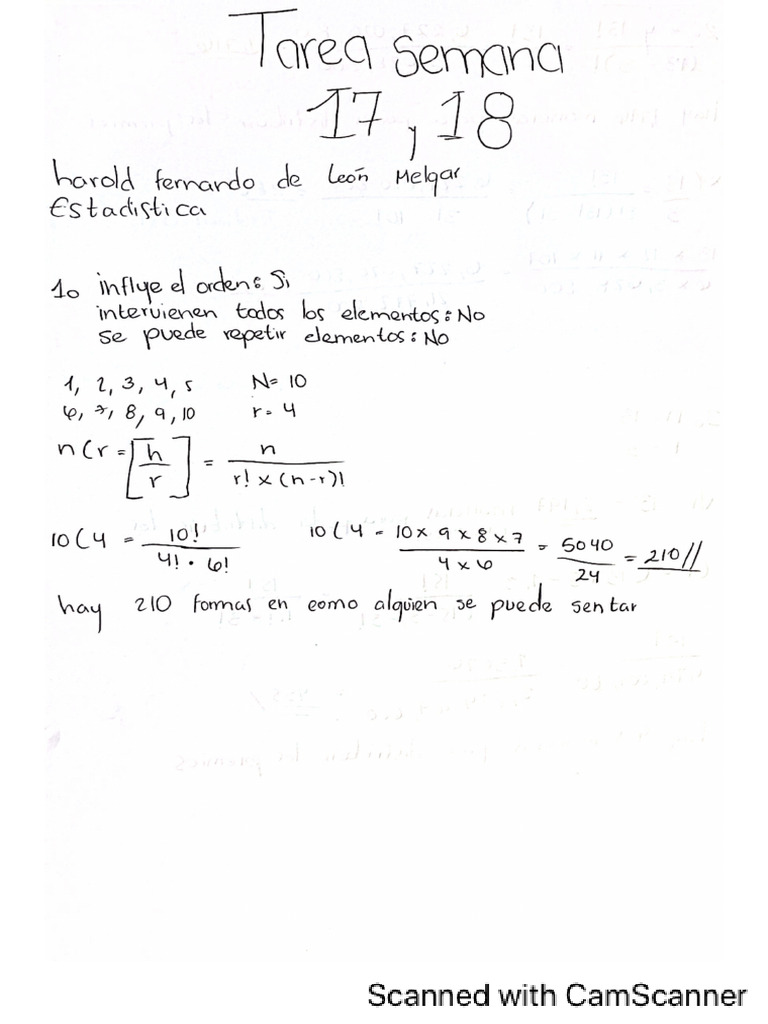 Tarea semana
17 y 18
harold fernando de León Melgar
Estadistica
1. influye el orden: Si
intervienen todos los elementos: No
se puede repetir elementos: No
1, 2, 3, 4, 5 N= 10
6, 7, 8, 9, 10 r= 4
nCr = [n/r] = n / r! x (n-r)!
10C4 = 10! / 4! · 6! 10C4 = 10 x 9 x 8 x 7 / 4 x 6 = 5040 / 24 = 210//
hay 210 formas en como alguien se puede sentar
Scanned with CamScanner